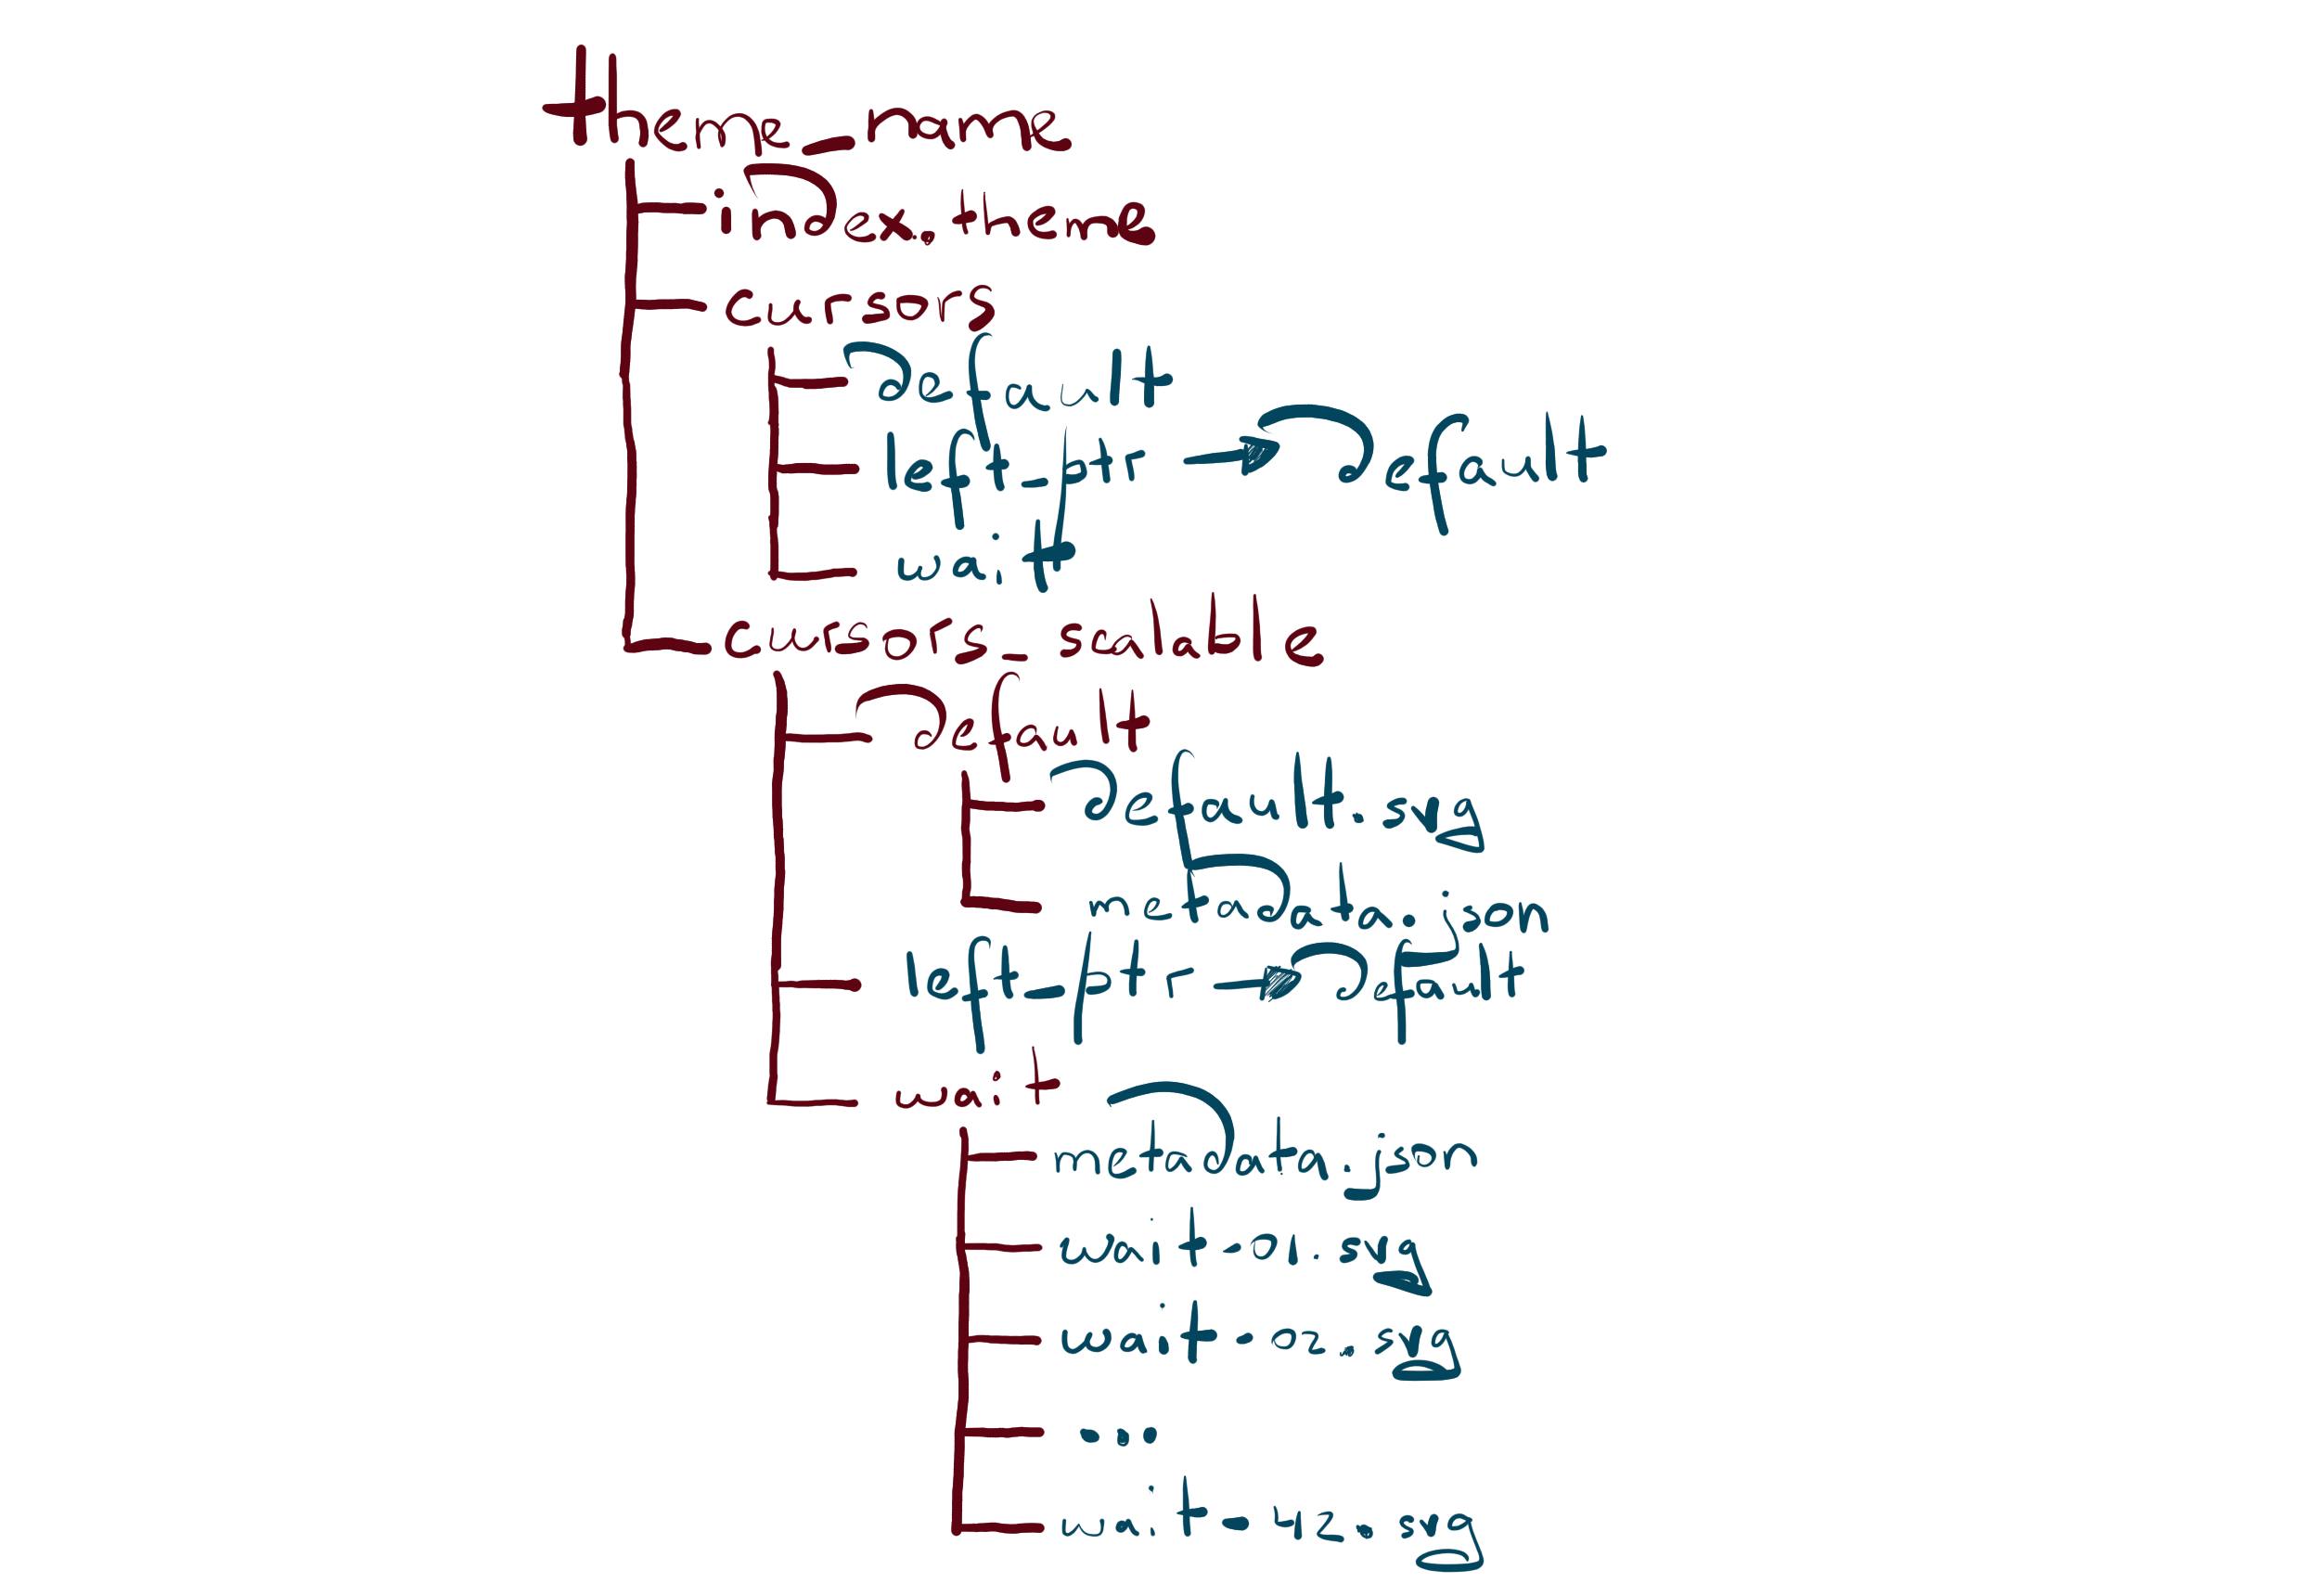 theme_name
index.theme
cursors
default
left_ptr → default
wait
cursors_scalable
default
default.svg
metadata.json
left-ptr → default
wait
metadata.json
wait-01.svg
wait-02.svg
...
wait-42.svg